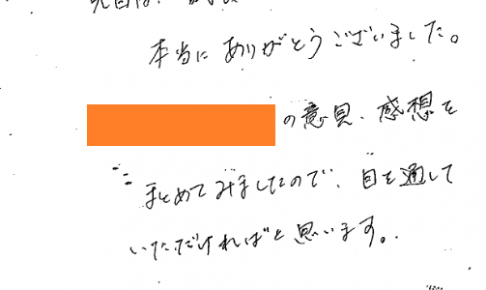 本当にありがとうございました。
の意見、感想を
まとめてみましたので、目を通して
いただければと思います。